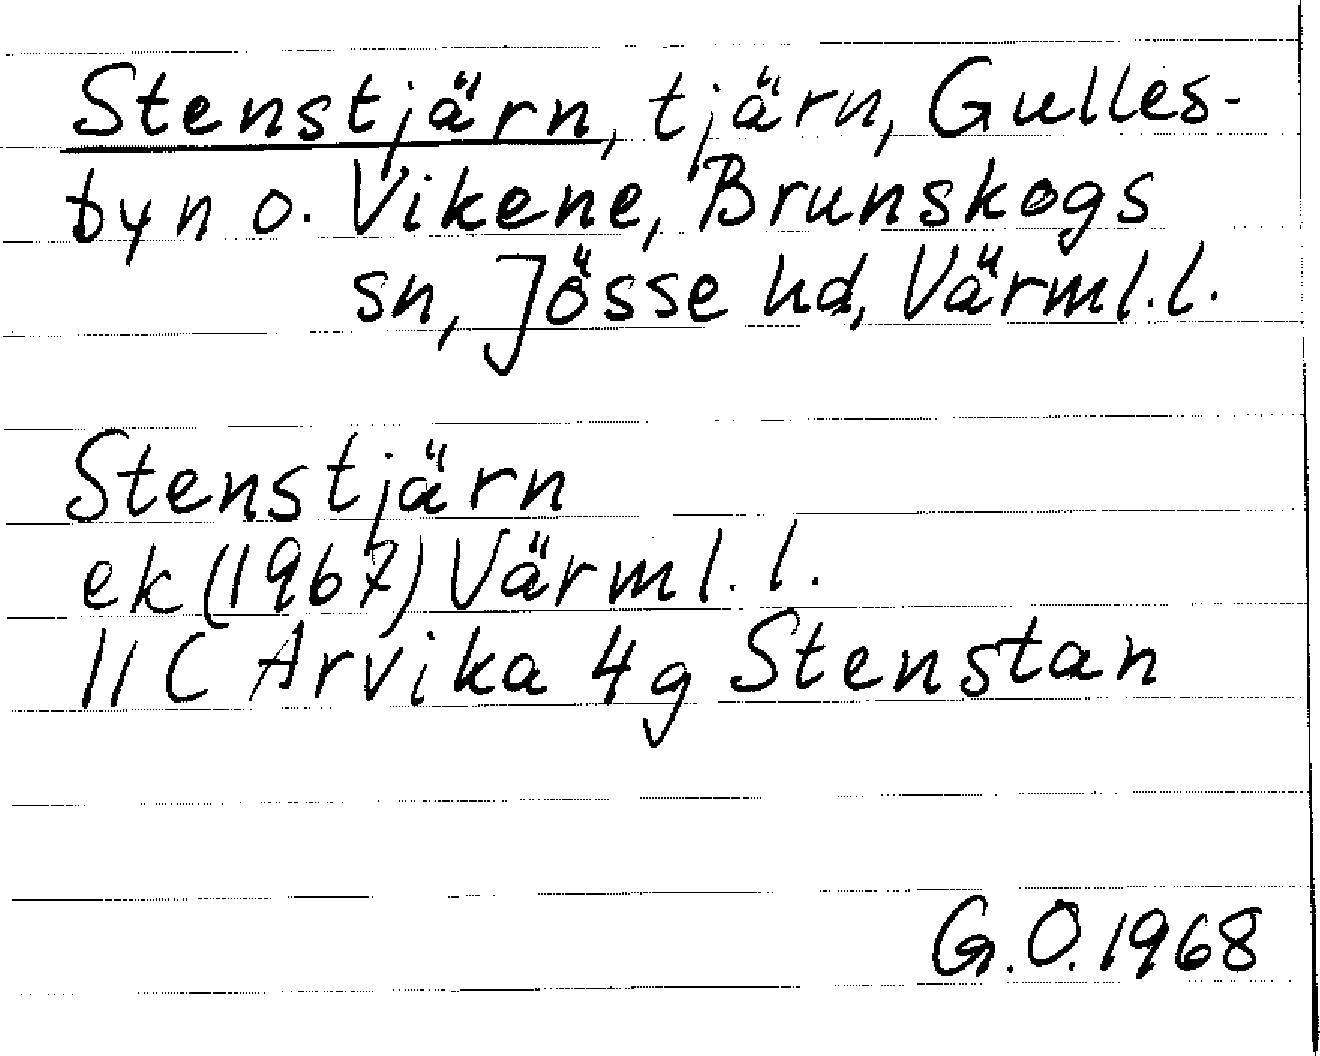 Stenstjärn, tjärn, Gulles-
byn o. Vikene, Brunskogs
sn, Jösse hd, Värml.l.
Stenstjärn
ek (1967) Värml.l.
11 C Arvika 4g Stenstan
G.O. 1968